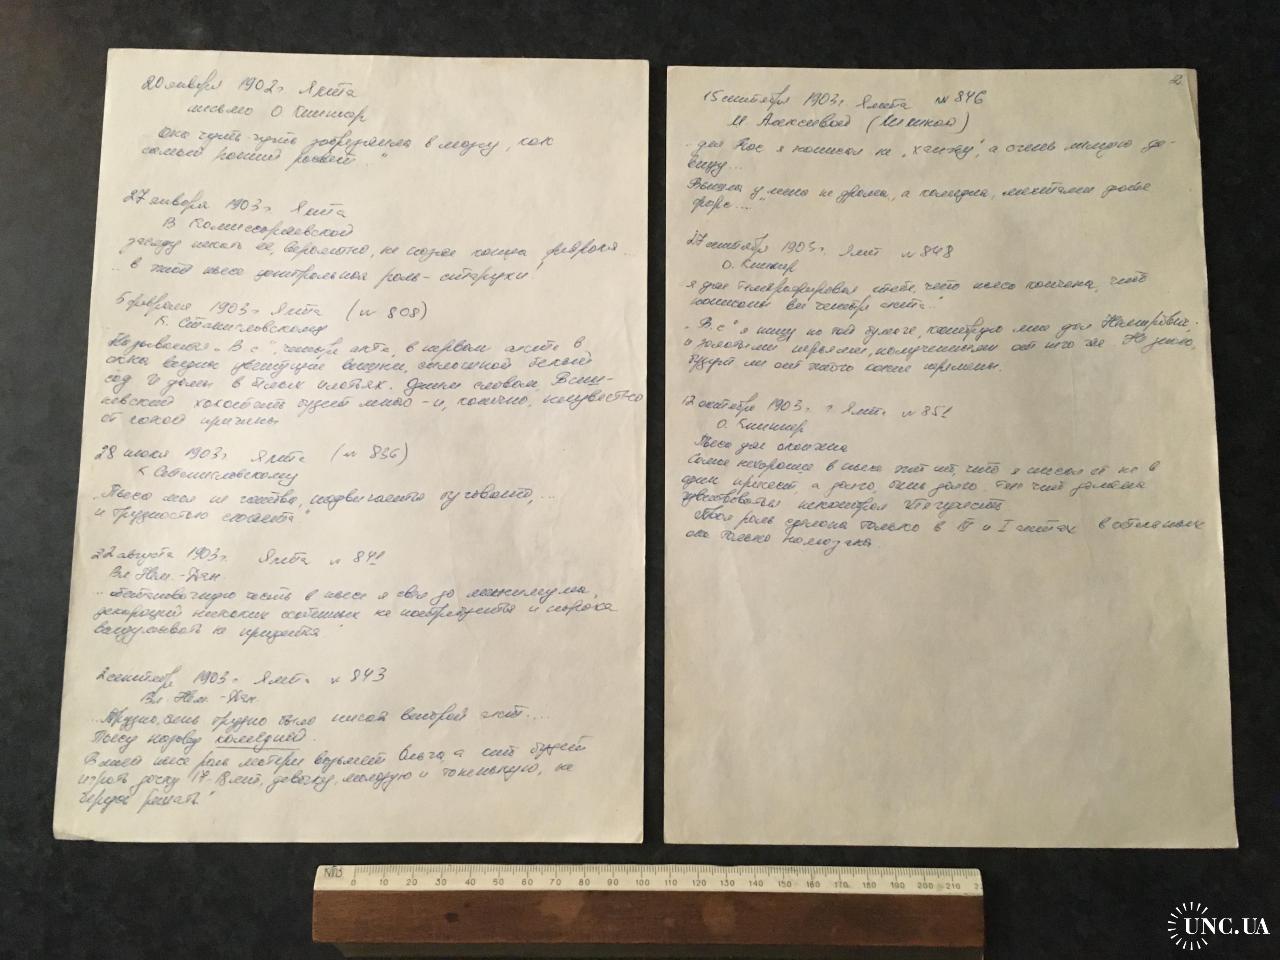 20 января 1902 г. Ялта
письмо О Книппер
Она чуть-чуть забрезжила в мозгу, как
самый ранний рассвет..."
27 января 1903 г. Ялта
В Комиссаржевской
засяду писать ее, вероятно, не позже конца февраля...
.. в этой пьесе центральная роль - старухи!
5 февраля 1903 г. Ялта (№ 808)
К. Станиславскому
Называется „В с", четыре акта, в первом акте в
окна видны цветущие вишни, сплошной белый
сад. И дамы в белых платьях. Одним словом, Виш-
невский хохотать будет много - и, конечно, неизвестно
от какой причины
28 июля 1903 г. Ялта (№ 836)
К Станиславскому
„Пьеса моя не готова, подвигается туговато, ...
и трудностью сюжета"
22 августа 1903 г. Ялта № 841
Вл. Нем.-Дан.
.. обстановочную часть в пьесе я свел до минимума,
декораций никаких особенных не потребуется и пороха
выдумывать не придется"
2 сентября 1903 г. Ялта № 843
Вл. Нем.-Дан.
...Трудно, очень трудно было писать второй акт....
Пьесу назову комедией.
В моей пьесе роль матери возьмет Ольга, а кто будет
играть дочку 17-18 лет, девочку, молодую и тоненькую, не
берусь решать"
2
15 сентября 1903 г. Ялта № 846
М Алексеевой (Лилиной)
.. для Вас я написал не „ханжу", а очень милую де-
вицу...
Вышла у меня не драма, а комедия, местами даже
фарс....
27 сентября 1903 г. Ялта № 848
О. Книппер
я уже телеграфировал тебе, что пьеса кончена, что
написаны все четыре акта."
„В. с" я пишу на той бумаге, которую мне дал Немирович,
и золотыми перьями, полученными от него же. Не знаю,
будут ли от этого какие перемены.
12 октября 1903 г. Ялта № 851
О. Книппер
Пьеса уже окончена
Самое нехорошее в пьесе это то, что я писал ее не в
один присест, а долго, очень долго, так что должна
чувствоваться некоторая тягучесть
Твоя роль сделана только в III и I актах в остальных
она только намазана.
NTD
0 10 20 30 40 50 60 70 80 90 100 110 120 130 140 150 160 170 180 190 200 210
UNC.UA